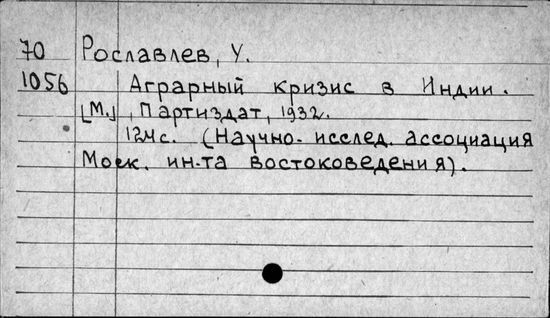 70 Рославлев, У.
1056 Аграрный кризис в Индии.
[М.], Партиздат, 1932.
124с. (Научно-исслед. ассоциация
Моск. ин-та востоковедения).